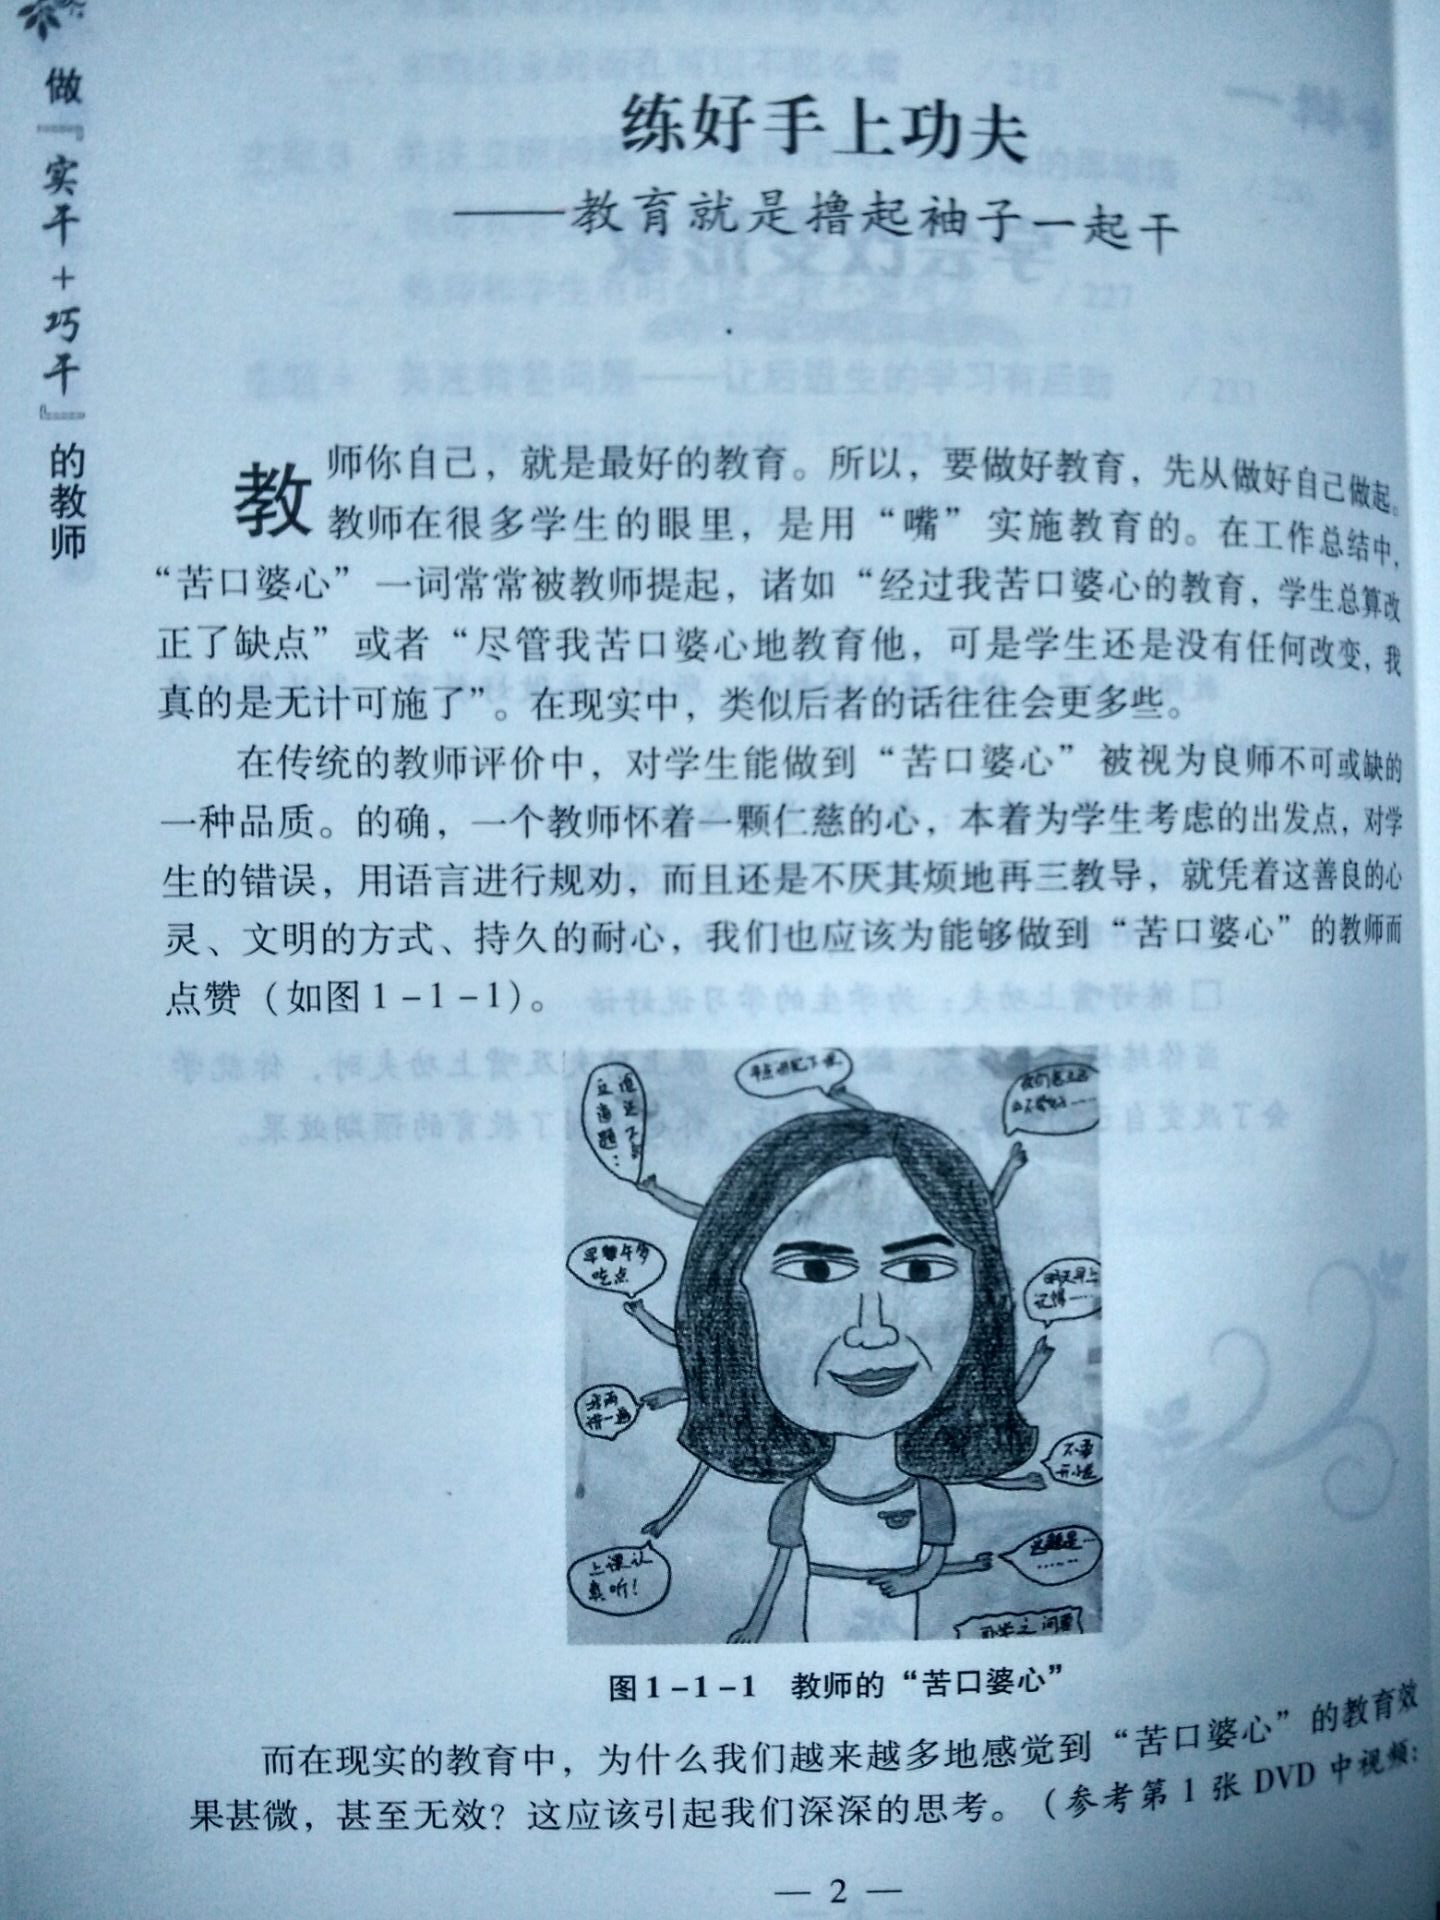 做『实干+巧干』的教师
练好手上功夫
——教育就是撸起袖子一起干
教师你自己，就是最好的教育。所以，要做好教育，先从做好自己做起。
教师在很多学生的眼里，是用“嘴”实施教育的。在工作总结中，
“苦口婆心”一词常常被教师提起，诸如“经过我苦口婆心的教育，学生总算改
正了缺点”或者“尽管我苦口婆心地教育他，可是学生还是没有任何改变，我
真的是无计可施了”。在现实中，类似后者的话往往会更多些。
在传统的教师评价中，对学生能做到“苦口婆心”被视为良师不可或缺的
一种品质。的确，一个教师怀着一颗仁慈的心，本着为学生考虑的出发点，对学
生的错误，用语言进行规劝，而且还是不厌其烦地再三教导，就凭着这善良的心
灵、文明的方式、持久的耐心，我们也应该为能够做到“苦口婆心”的教师而
点赞（如图1-1-1）。
早餐午宁
吃点
上课认
真听！
这题是…
……
图1-1-1 教师的“苦口婆心”
而在现实的教育中，为什么我们越来越多地感觉到“苦口婆心”的教育效
果甚微，甚至无效？这应该引起我们深深的思考。（参考第1张DVD中视频：
— 2 —